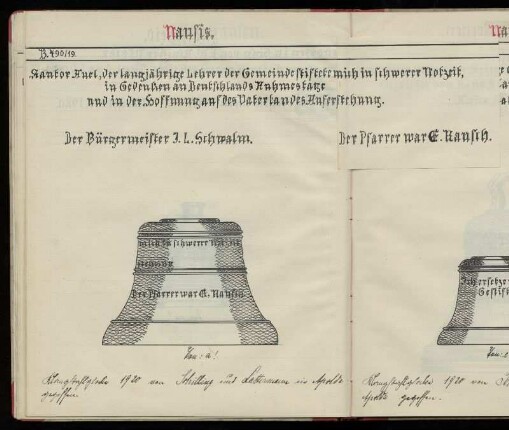 Ransis.
B.490/19.
Kantor Juel, der langjährige Lehrer der Gemeinde stiftete mich in schwerer Notzeit,
in Gedenken an Deutschlands Ruhmestage
und in der Hoffnung auf des Vaterlandes Auferstehung.
Der Bürgermeister J. L. Schwalm.
Der Pfarrer war E. Rausch.
mich in schwerer Notzeit
stehung
Der Pfarrer war E. Rausch
Ton: a!
Klangstahlglocke 1920 von Schilling und Lattermann in Apolda
gegossen.
Ich ersetze
Gestift
Ton:
Klangstahlglocke 1920 von
Apolda gegossen.